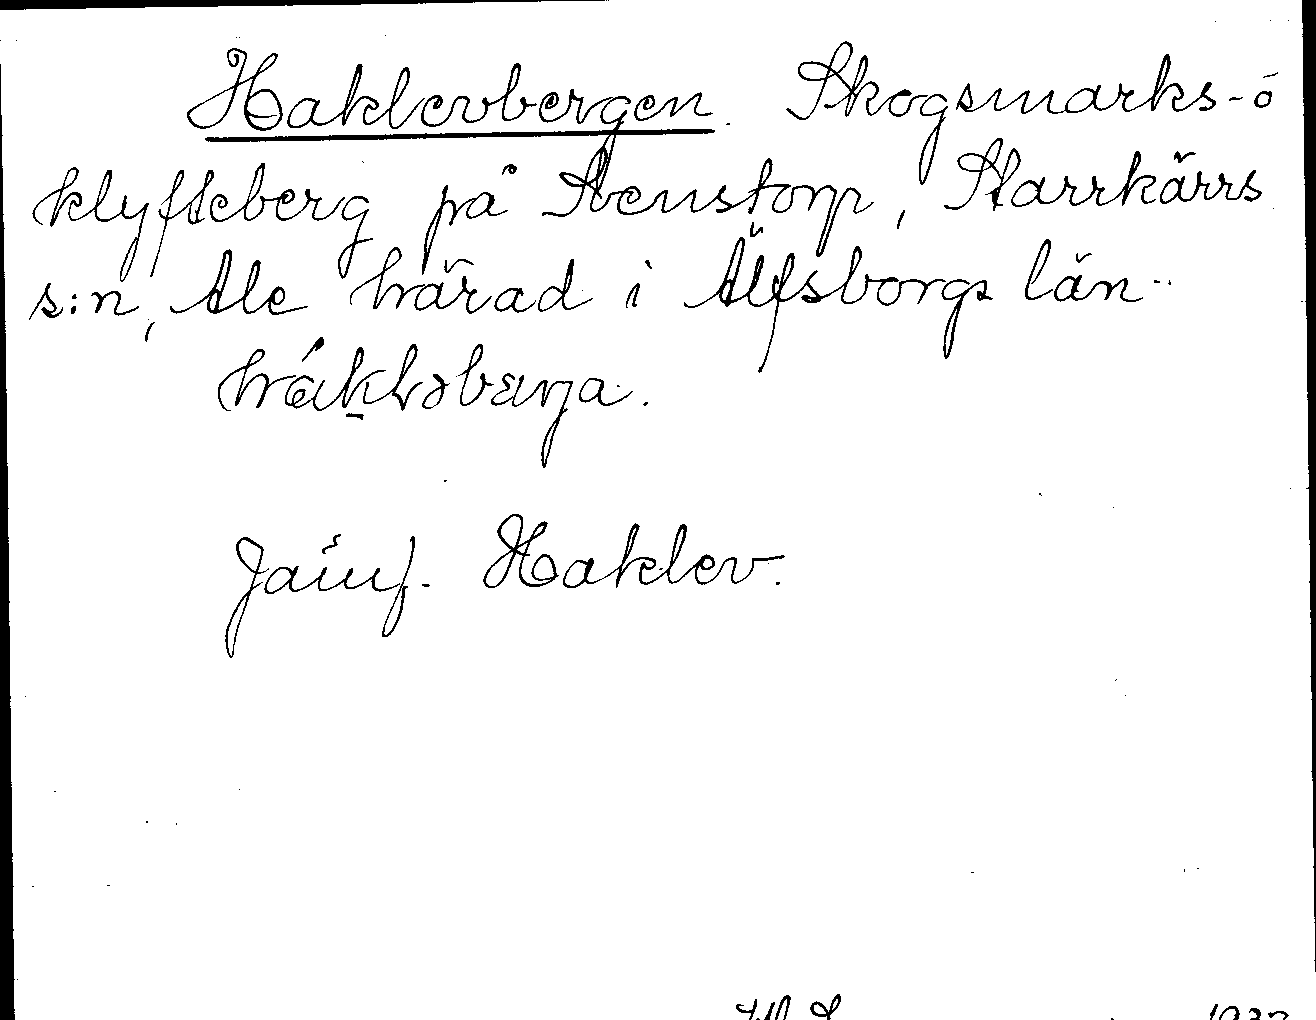 Haklevbergen. Skogsmarks- ó
klyfteberg på Stenstorp, Starrkärrs
s:n, Ale härad i Älfsborgs län.
hákləbærja.
Jämf. Haklev.